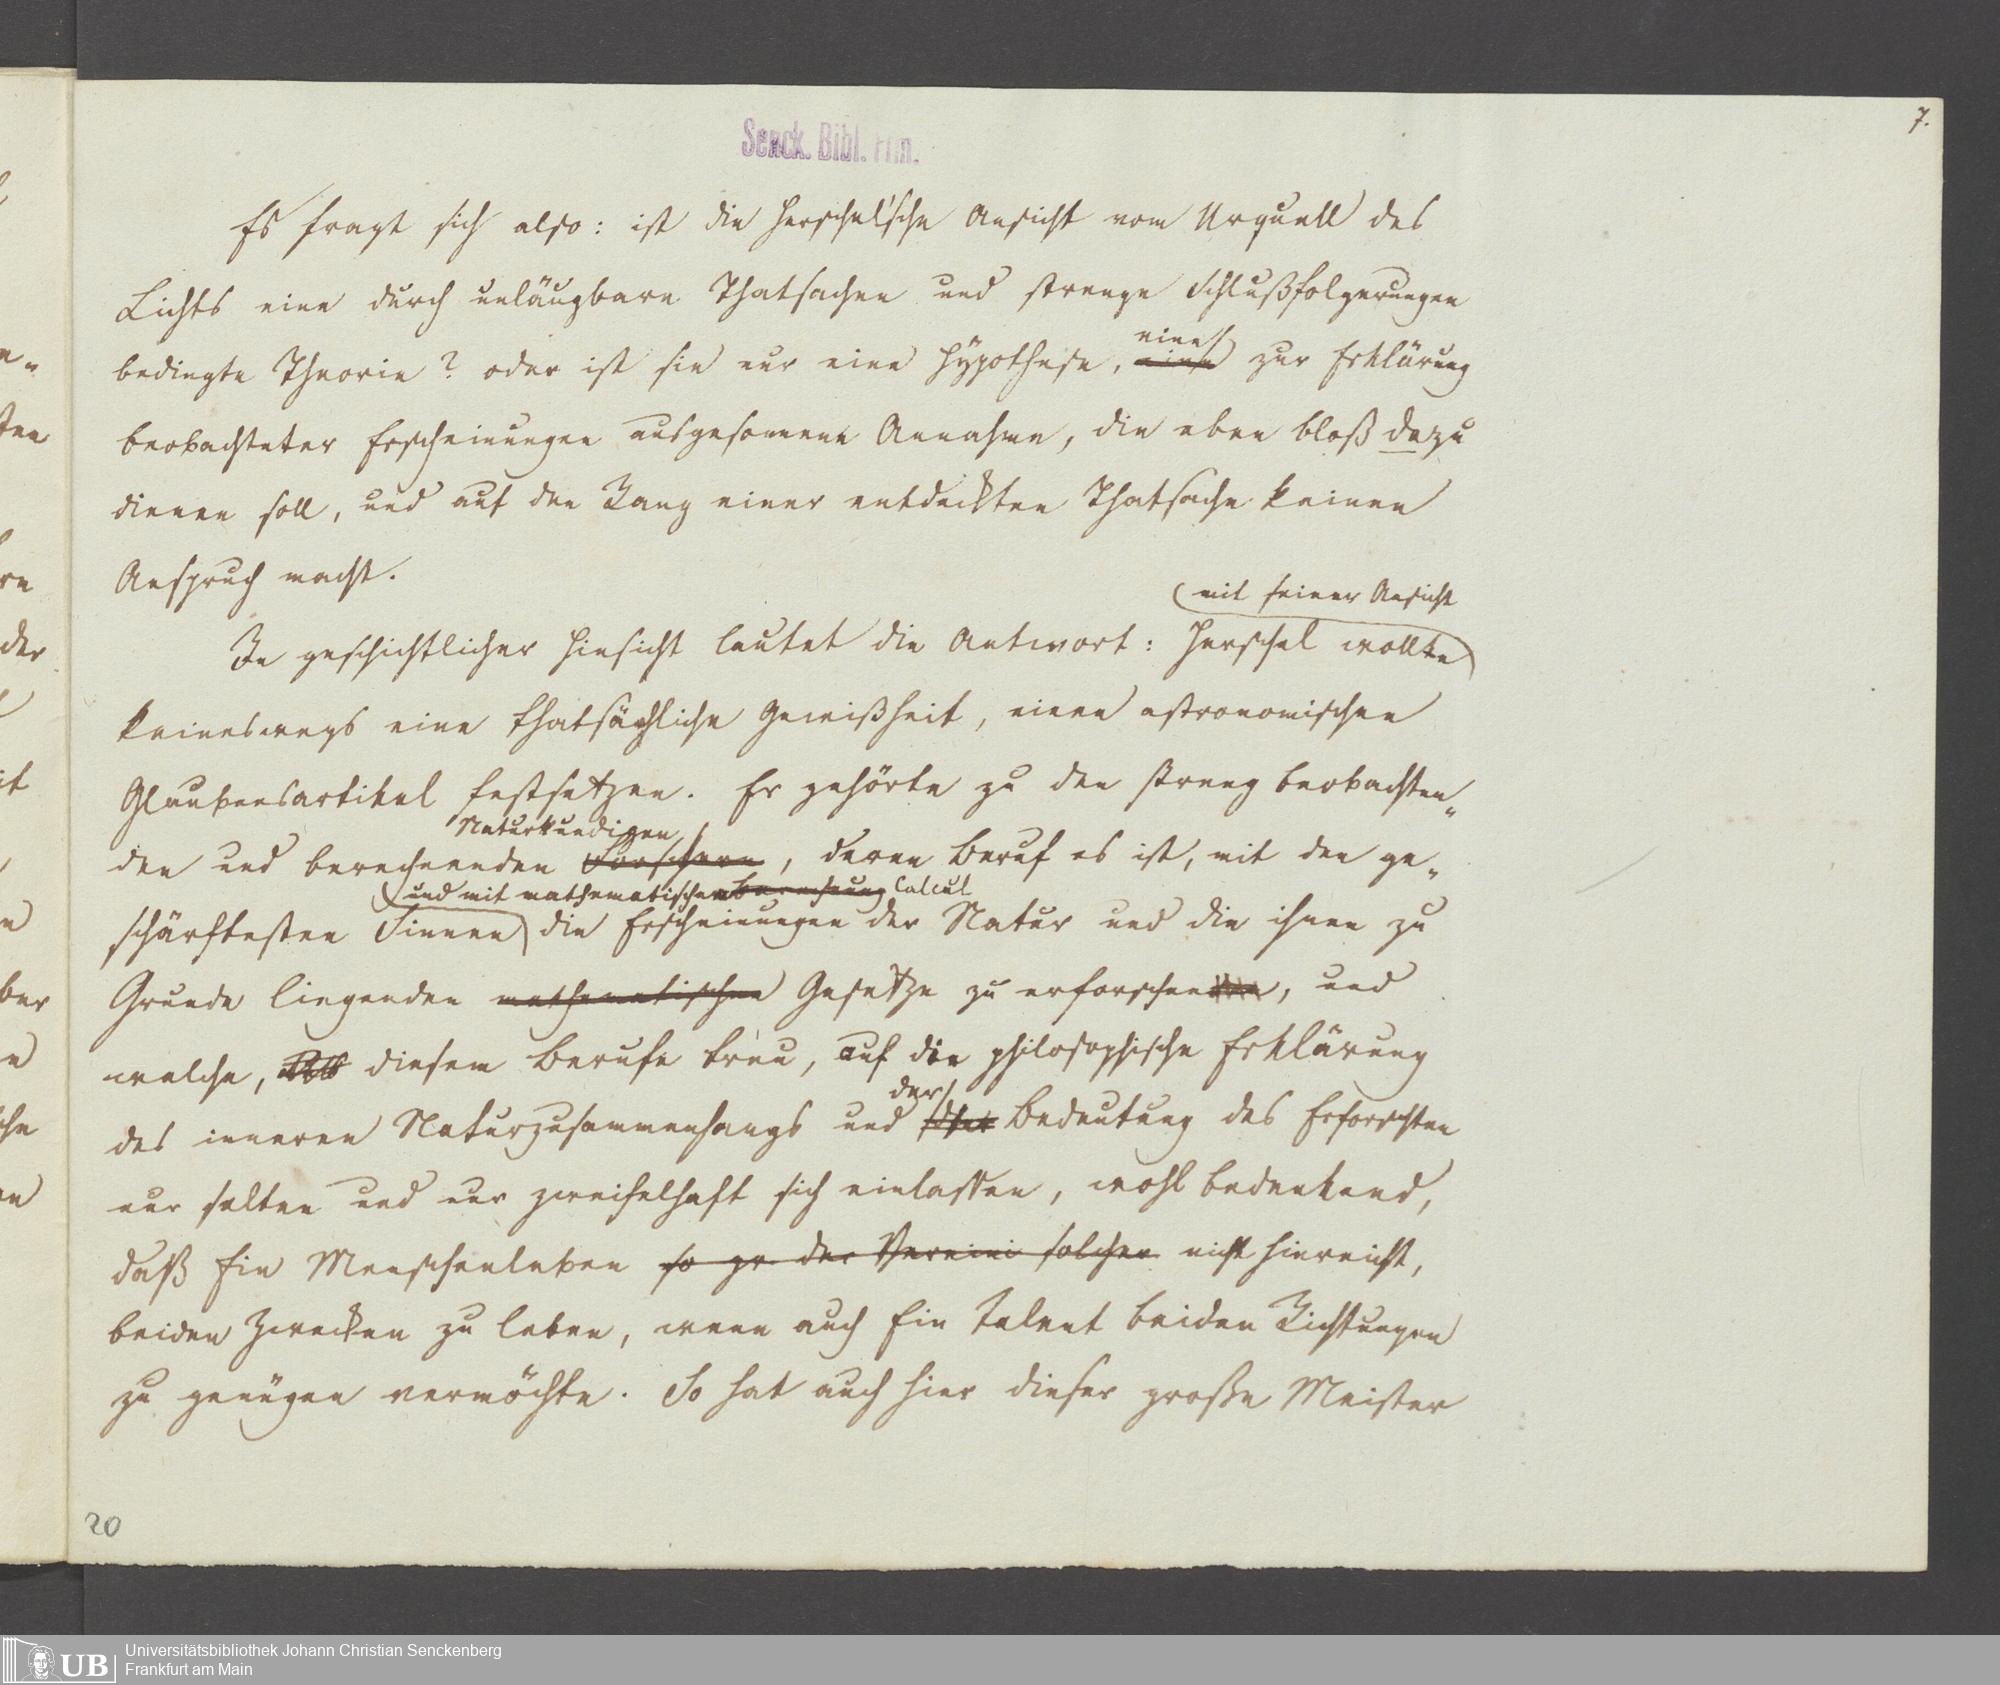 7.
Senck. Bibl. Ffm.
Es fragt sich also: ist die Herschel'sche Ansicht vom Urquell des
Lichts eine durch unläugbare Thatsachen und strenge Schlußfolgerungen
bedingte Theorie? oder ist sie nur eine Hypothese, eine zur Erklärung
beobachteter Erscheinungen ausgesonnene Annahme, die eben bloß dazu
dienen soll, und auf den Rang einer entdeckten Thatsache keinen
Anspruch macht.
mit seiner Ansicht
In geschichtlicher Hinsicht lautet die Antwort: Herschel wollte
keineswegs eine thatsächliche Gewißheit, einen astronomischen
Glaubensartikel festsetzen. Er gehörte zu den streng beobachten-
Naturkundigen
den und berechnenden Forschern, deren Beruf es ist, mit den ge-
und mit mathematischem Berechnung Calcul
schärftesten Sinnen die Erscheinungen der Natur und die ihnen zu
Grunde liegenden mathematischen Gesetze zu erforschen, und
welche, diesem Berufe treu, auf die philosophische Erklärung
der
des inneren Naturzusammenhangs und Bedeutung des Erforschten
nur selten und nur zweifelhaft sich einlassen, wohl bedenkend,
daß Ein Menschenleben so gr. der Verein solcher nicht hinreicht,
beiden Zwecken zu leben, wenn auch Ein Talent beiden Richtungen
zu genügen vermöchte. So hat auch hier dieser große Meister
20
UB
Universitätsbibliothek Johann Christian Senckenberg
Frankfurt am Main